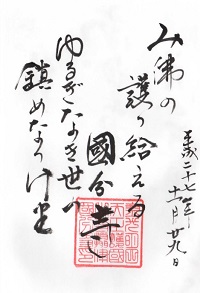 み佛の
護り給える
國分寺
ゆるぎなき世の
鎮めなりけり
平成二十七年
十一月廿九日